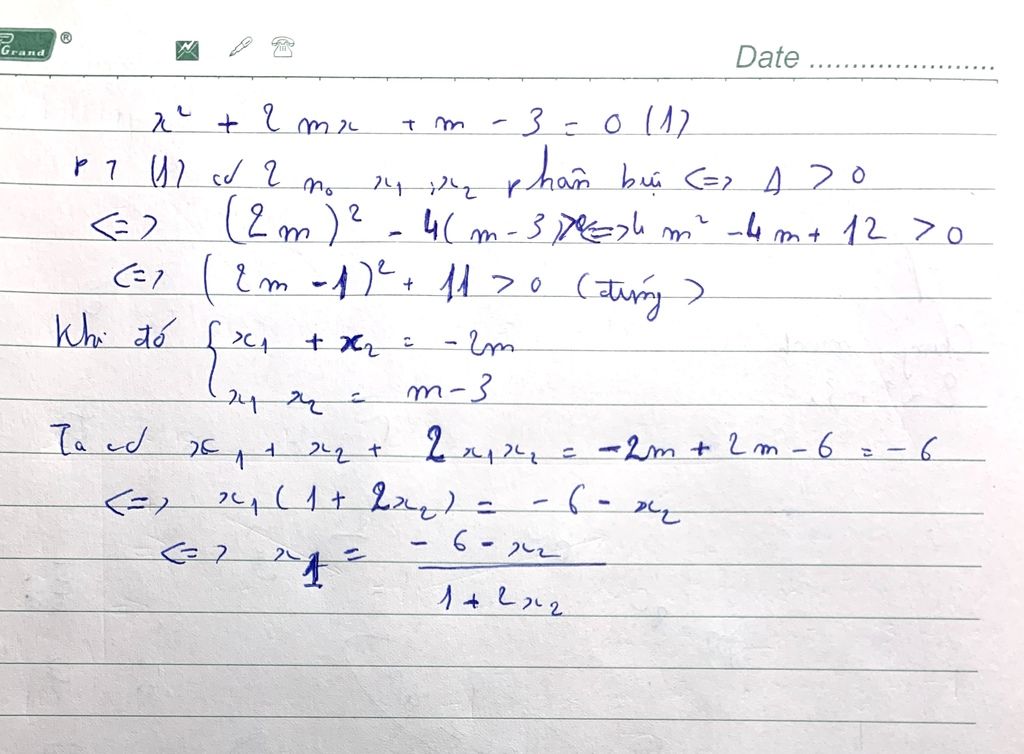 Grand ®
Date ........................
x² + 2mx + m - 3 = 0 (1)
PT (1) có 2 no x₁ ; x₂ phân biệt <=> Δ > 0
<=> (2m)² - 4(m - 3) > 0 <=> 4m² - 4m + 12 > 0
<=> (2m - 1)² + 11 > 0 (đúng)
Khi đó { x₁ + x₂ = -2m
x₁ x₂ = m - 3
Ta có x₁ + x₂ + 2x₁x₂ = -2m + 2m - 6 = -6
<=> x₁(1 + 2x₂) = -6 - x₂
<=> x₁ = -6 - x₂
1 + 2x₂